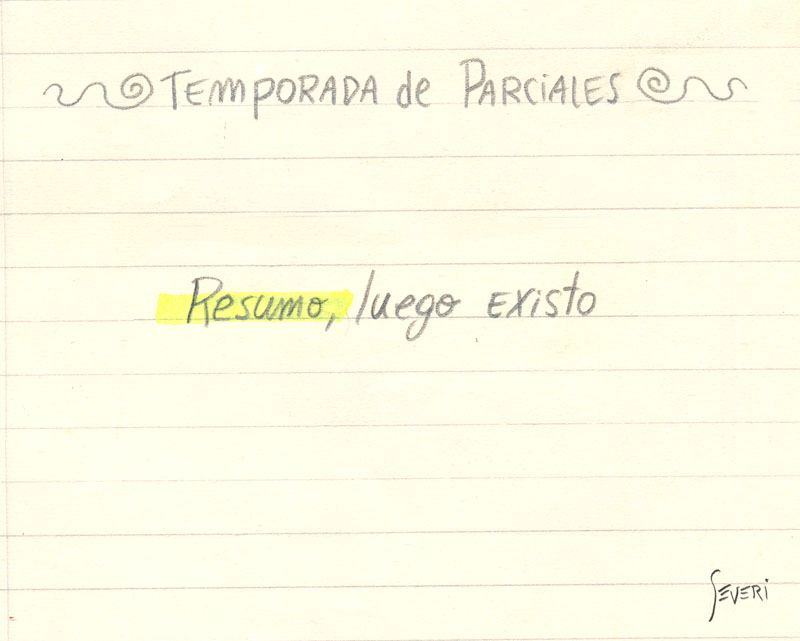 TEMPORADA de PARCIALES
Resumo, luego existo
SEVERI